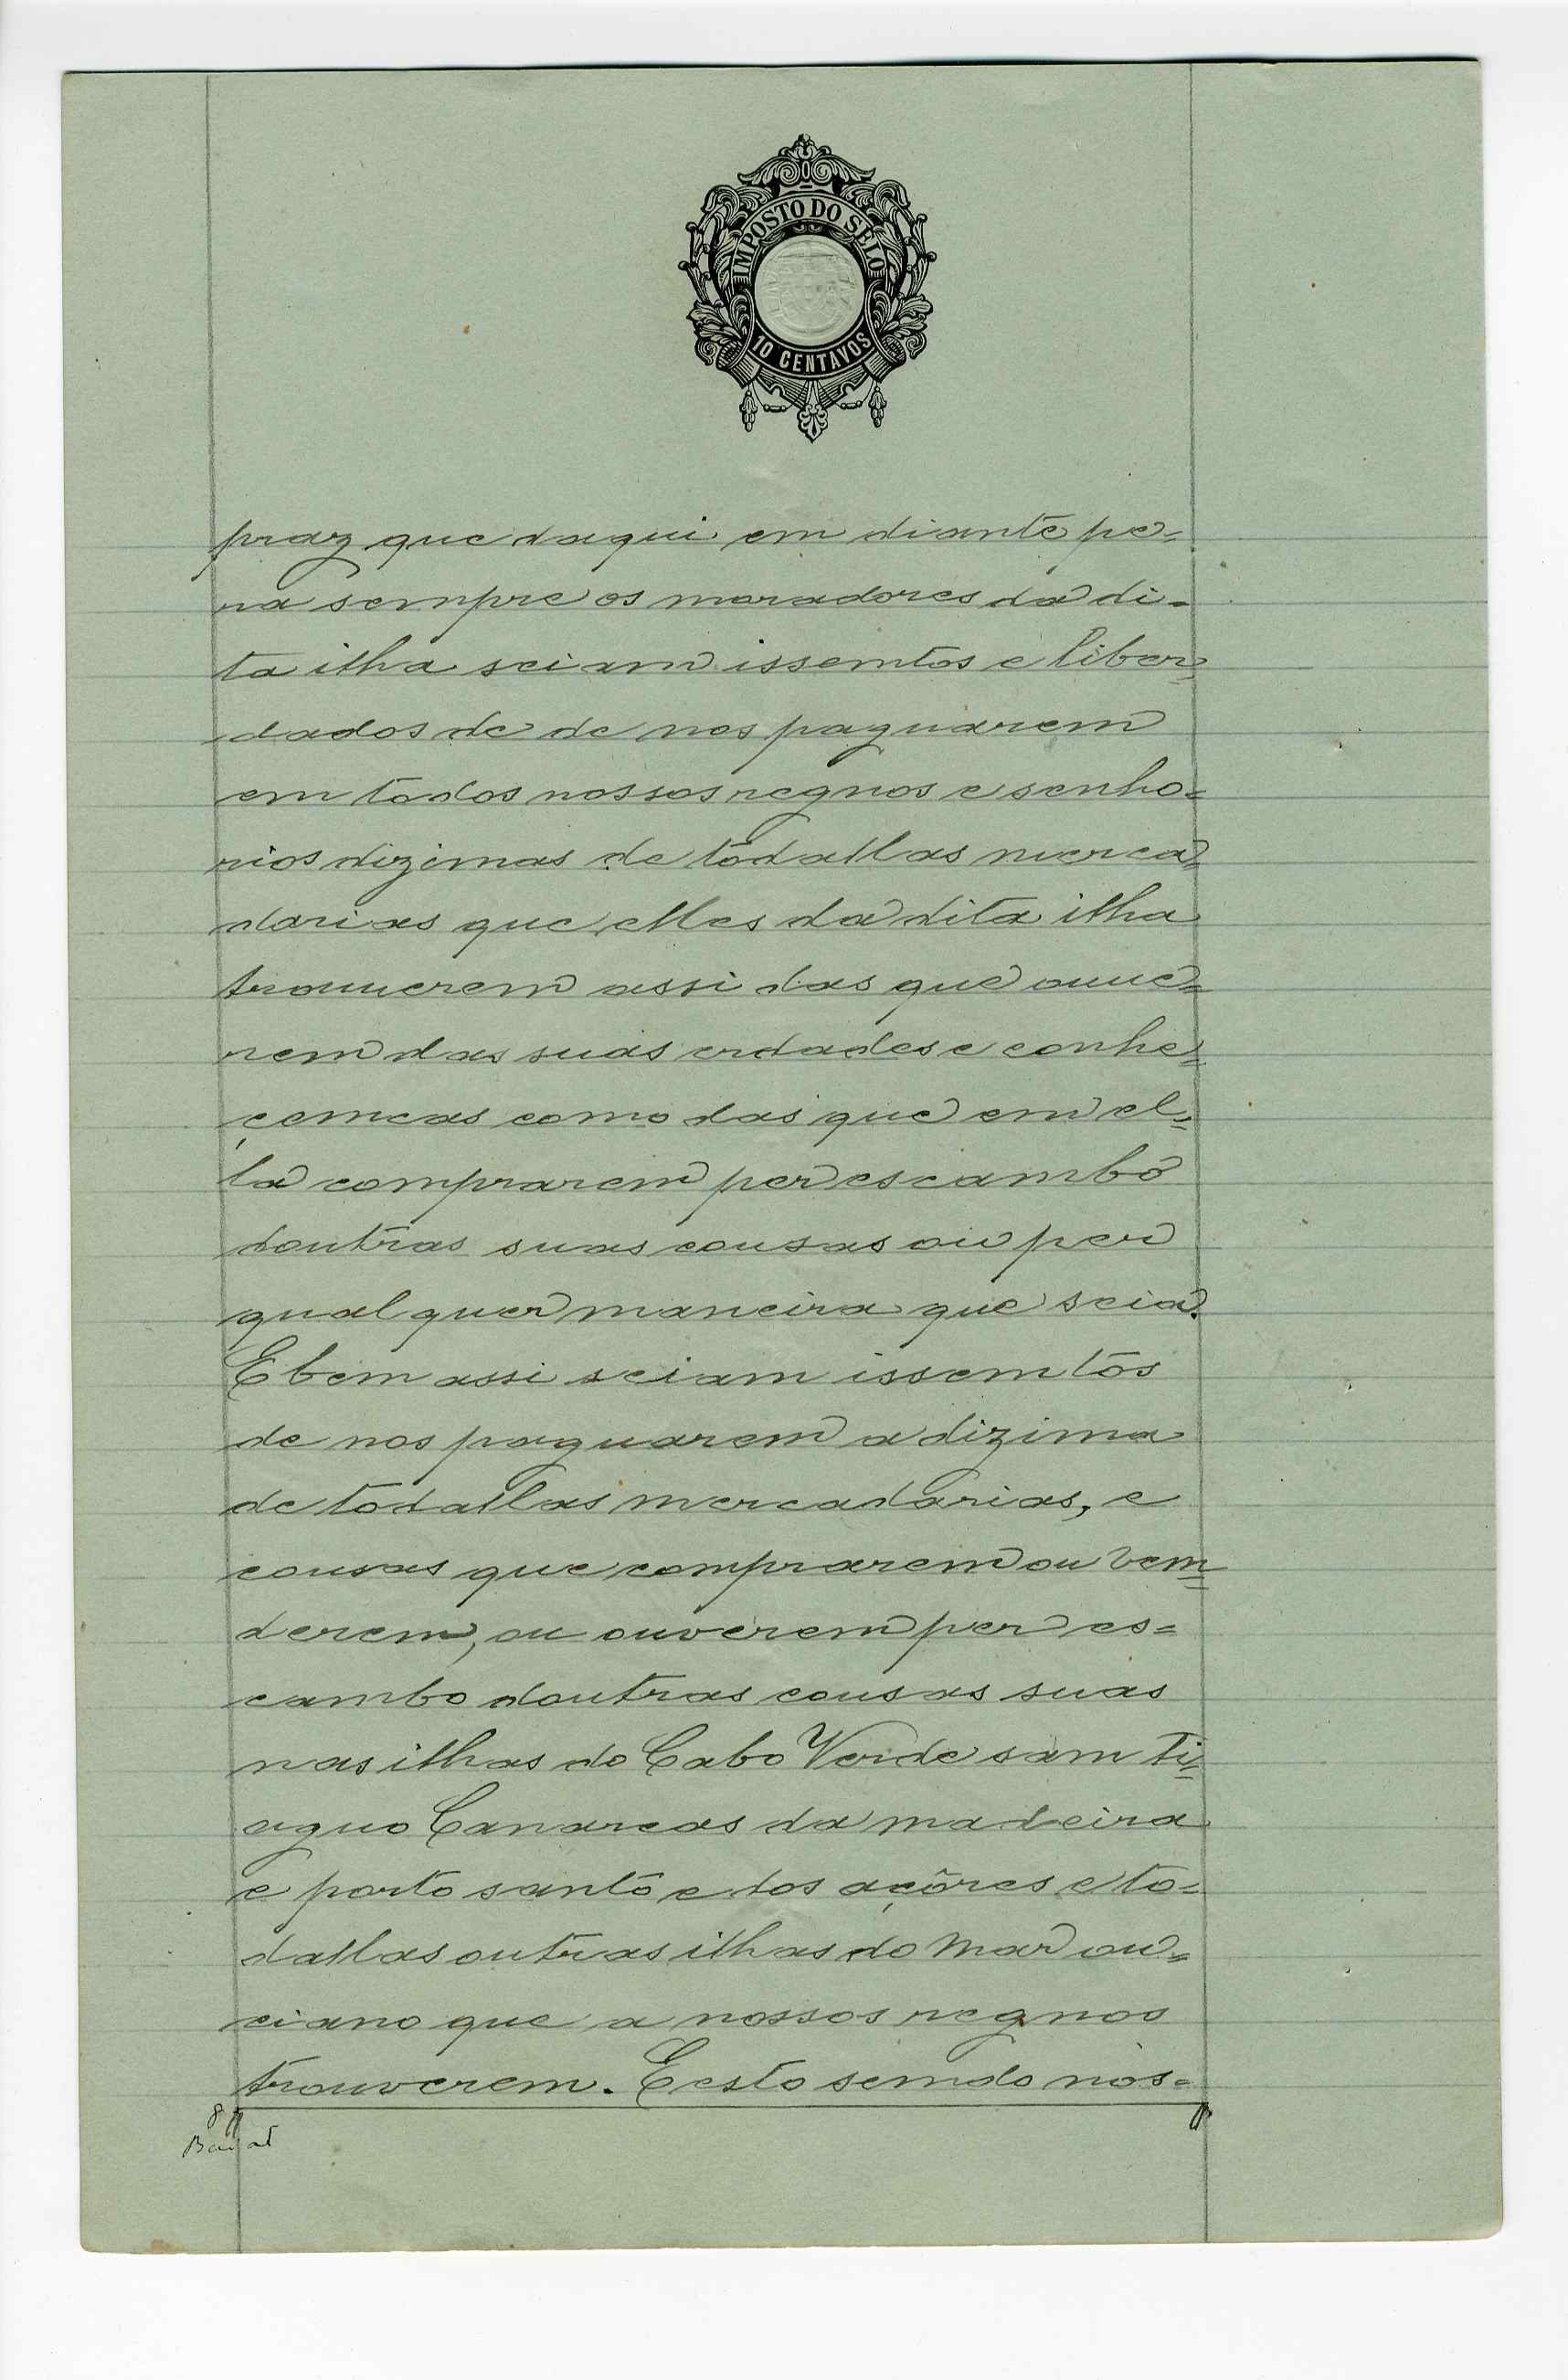 IMPOSTO DO SELO
10 CENTAVOS
praz que daqui em diante pe-
ra sempre os moradores da di-
ta ilha seiam issemtos e liber-
dados de de nos paguarem
em todos nossos regnos e senho-
rios dizimas de todallas merca-
darias que elles da dita ilha
trouuerem assi das que ouue-
rem das suas erdades e conhe-
çemcas como das que em el-
la comprarem per escambo
doutras suas cousas ou per
qual quer maneira que seia.
E bem assi seiam issemtos
de nos paguarem a dizima
de todallas mercadarias, e
cousas que comprarem ou vem-
derem, ou ouverem per es-
cambo doutras cousas suas
nas ilhas do Cabo Verde sam Ti-
aguo Canareas da madeira
e porto santo e dos açôres e to-
dallas outras ilhas do mar ou-
ciano que a nossos regnos
trouverem. E esto semdo nos-